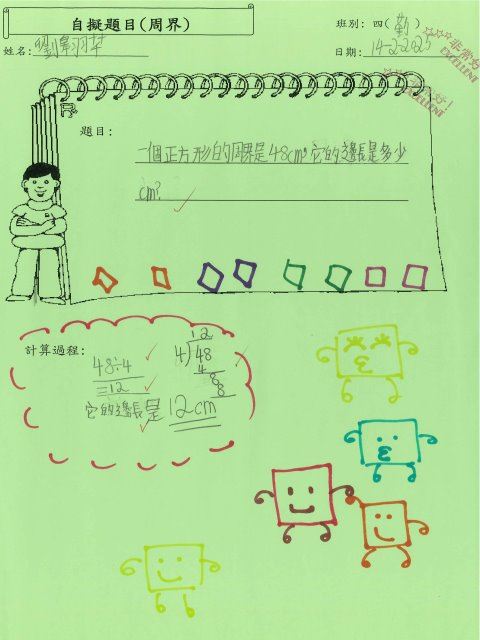 自擬題目(周界)
班別: 四(勤)
姓名:
日期: 14-2-2025
非常好!
EXCELLENT
EXCELLENT!
題目:
一個正方形的周界是48cm。它的邊長是多少
cm?
計算過程:
48÷4
=12
它的邊長是12cm
12
4 48
4
8
8